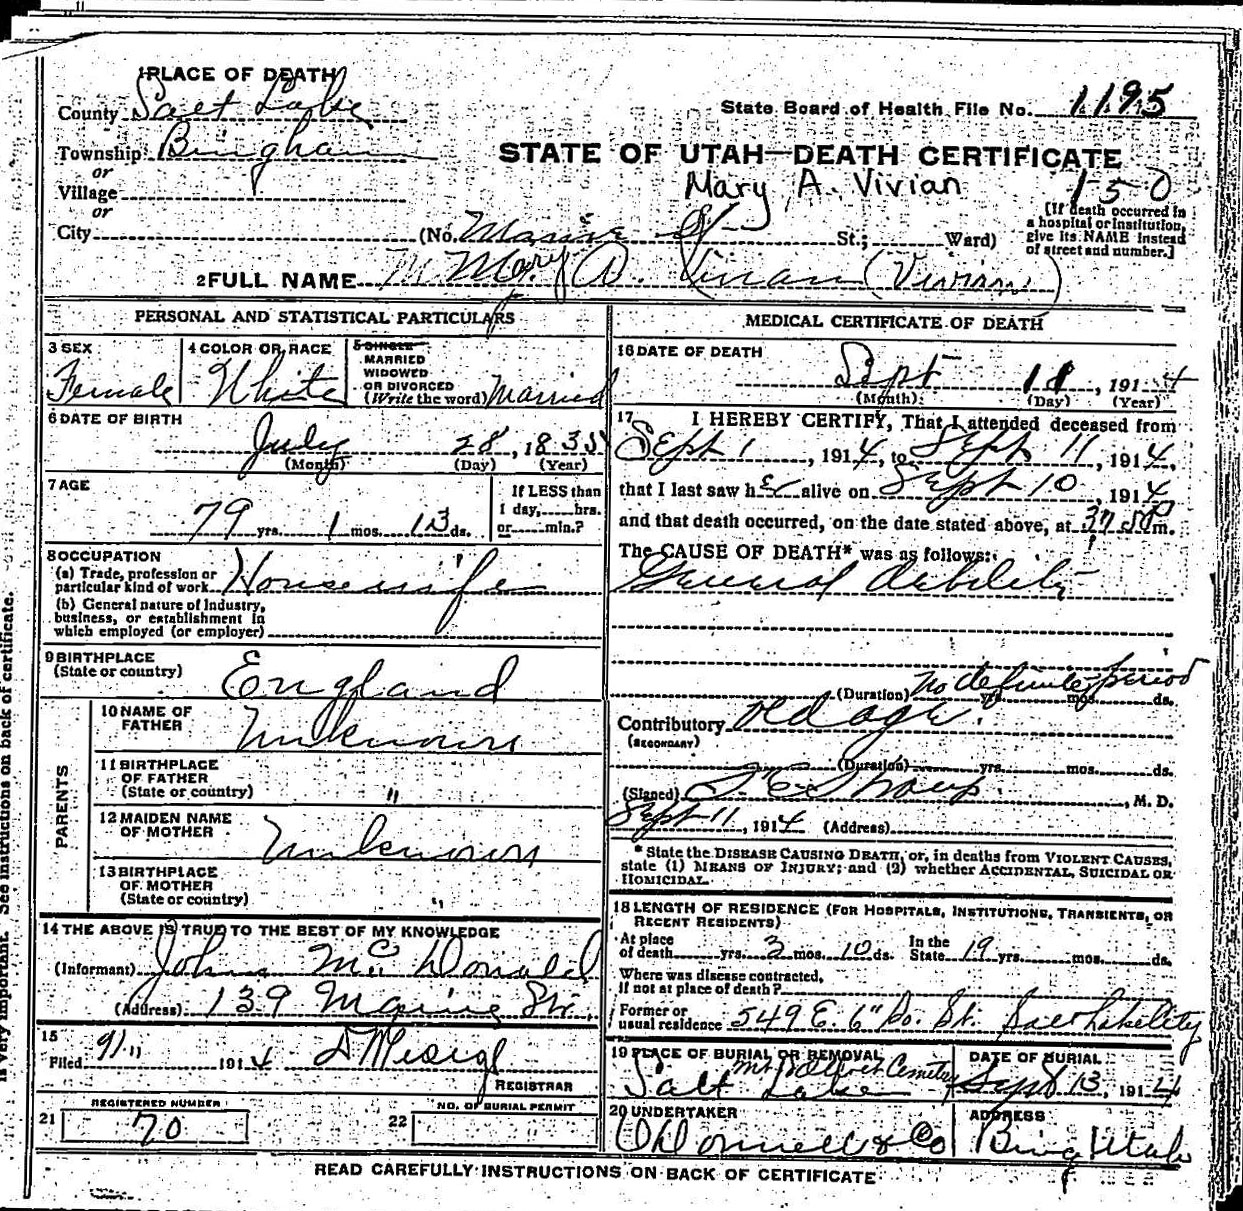 1 PLACE OF DEATH
County Salt Lake
State Board of Health File No. 1195
Township Bingham
or
STATE OF UTAH—DEATH CERTIFICATE
Village
Mary A. Vivian 150
or
[If death occurred in a hospital or institution, give its NAME instead of street and number.]
City (No. St.; Ward)
2 FULL NAME Mary A. Vivian (Vivian)
PERSONAL AND STATISTICAL PARTICULARS
3 SEX
Female
4 COLOR OR RACE
White
5 SINGLE
MARRIED
WIDOWED
OR DIVORCED
(Write the word) Married
6 DATE OF BIRTH
July 28, 1835
(Month) (Day) (Year)
7 AGE
79 yrs. 1 mos. 13 ds.
If LESS than
1 day, hrs.
or min.?
8 OCCUPATION
(a) Trade, profession or
particular kind of work Housewife
(b) General nature of Industry,
business, or establishment in
which employed (or employer)
9 BIRTHPLACE
(State or country) England
PARENTS
10 NAME OF
FATHER Unknown
11 BIRTHPLACE
OF FATHER
(State or country) "
12 MAIDEN NAME
OF MOTHER Unknown
13 BIRTHPLACE
OF MOTHER
(State or country) "
14 THE ABOVE IS TRUE TO THE BEST OF MY KNOWLEDGE
(Informant) John McDonald
(Address) 139 St.
15
Filed 9/11 1914
REGISTRAR
REGISTERED NUMBER
21 70
NO. OF BURIAL PERMIT
22
MEDICAL CERTIFICATE OF DEATH
16 DATE OF DEATH
Sept 11, 1914
(Month) (Day) (Year)
17 I HEREBY CERTIFY, That I attended deceased from
Sept 1, 1914, to Sept 11, 1914,
that I last saw her alive on Sept 10, 1914
and that death occurred, on the date stated above, at m.
The CAUSE OF DEATH* was as follows:
General debility
(Duration) no definite period yrs. mos. ds.
Contributory old age.
(SECONDARY)
(Duration) yrs. mos. ds.
(Signed) M. D.
Sept 11, 1914 (Address)
* State the DISEASE CAUSING DEATH, or, in deaths from VIOLENT CAUSES,
state (1) MEANS OF INJURY; and (2) whether ACCIDENTAL, SUICIDAL OR
HOMICIDAL.
18 LENGTH OF RESIDENCE (FOR HOSPITALS, INSTITUTIONS, TRANSIENTS, OR
RECENT RESIDENTS)
At place
of death yrs. 2 mos. 10 ds.
In the
State 19 yrs. mos. ds.
Where was disease contracted,
if not at place of death?
Former or
usual residence 549 E. 6" So. St. Salt Lake City
19 PLACE OF BURIAL OR REMOVAL
Mt Olivet Cemetery
Salt Lake
DATE OF BURIAL
Sept 13, 1914
20 UNDERTAKER
O'Donnell & Co
ADDRESS
Bing Utah
READ CAREFULLY INSTRUCTIONS ON BACK OF CERTIFICATE
is very important. See instructions on back of certificate.